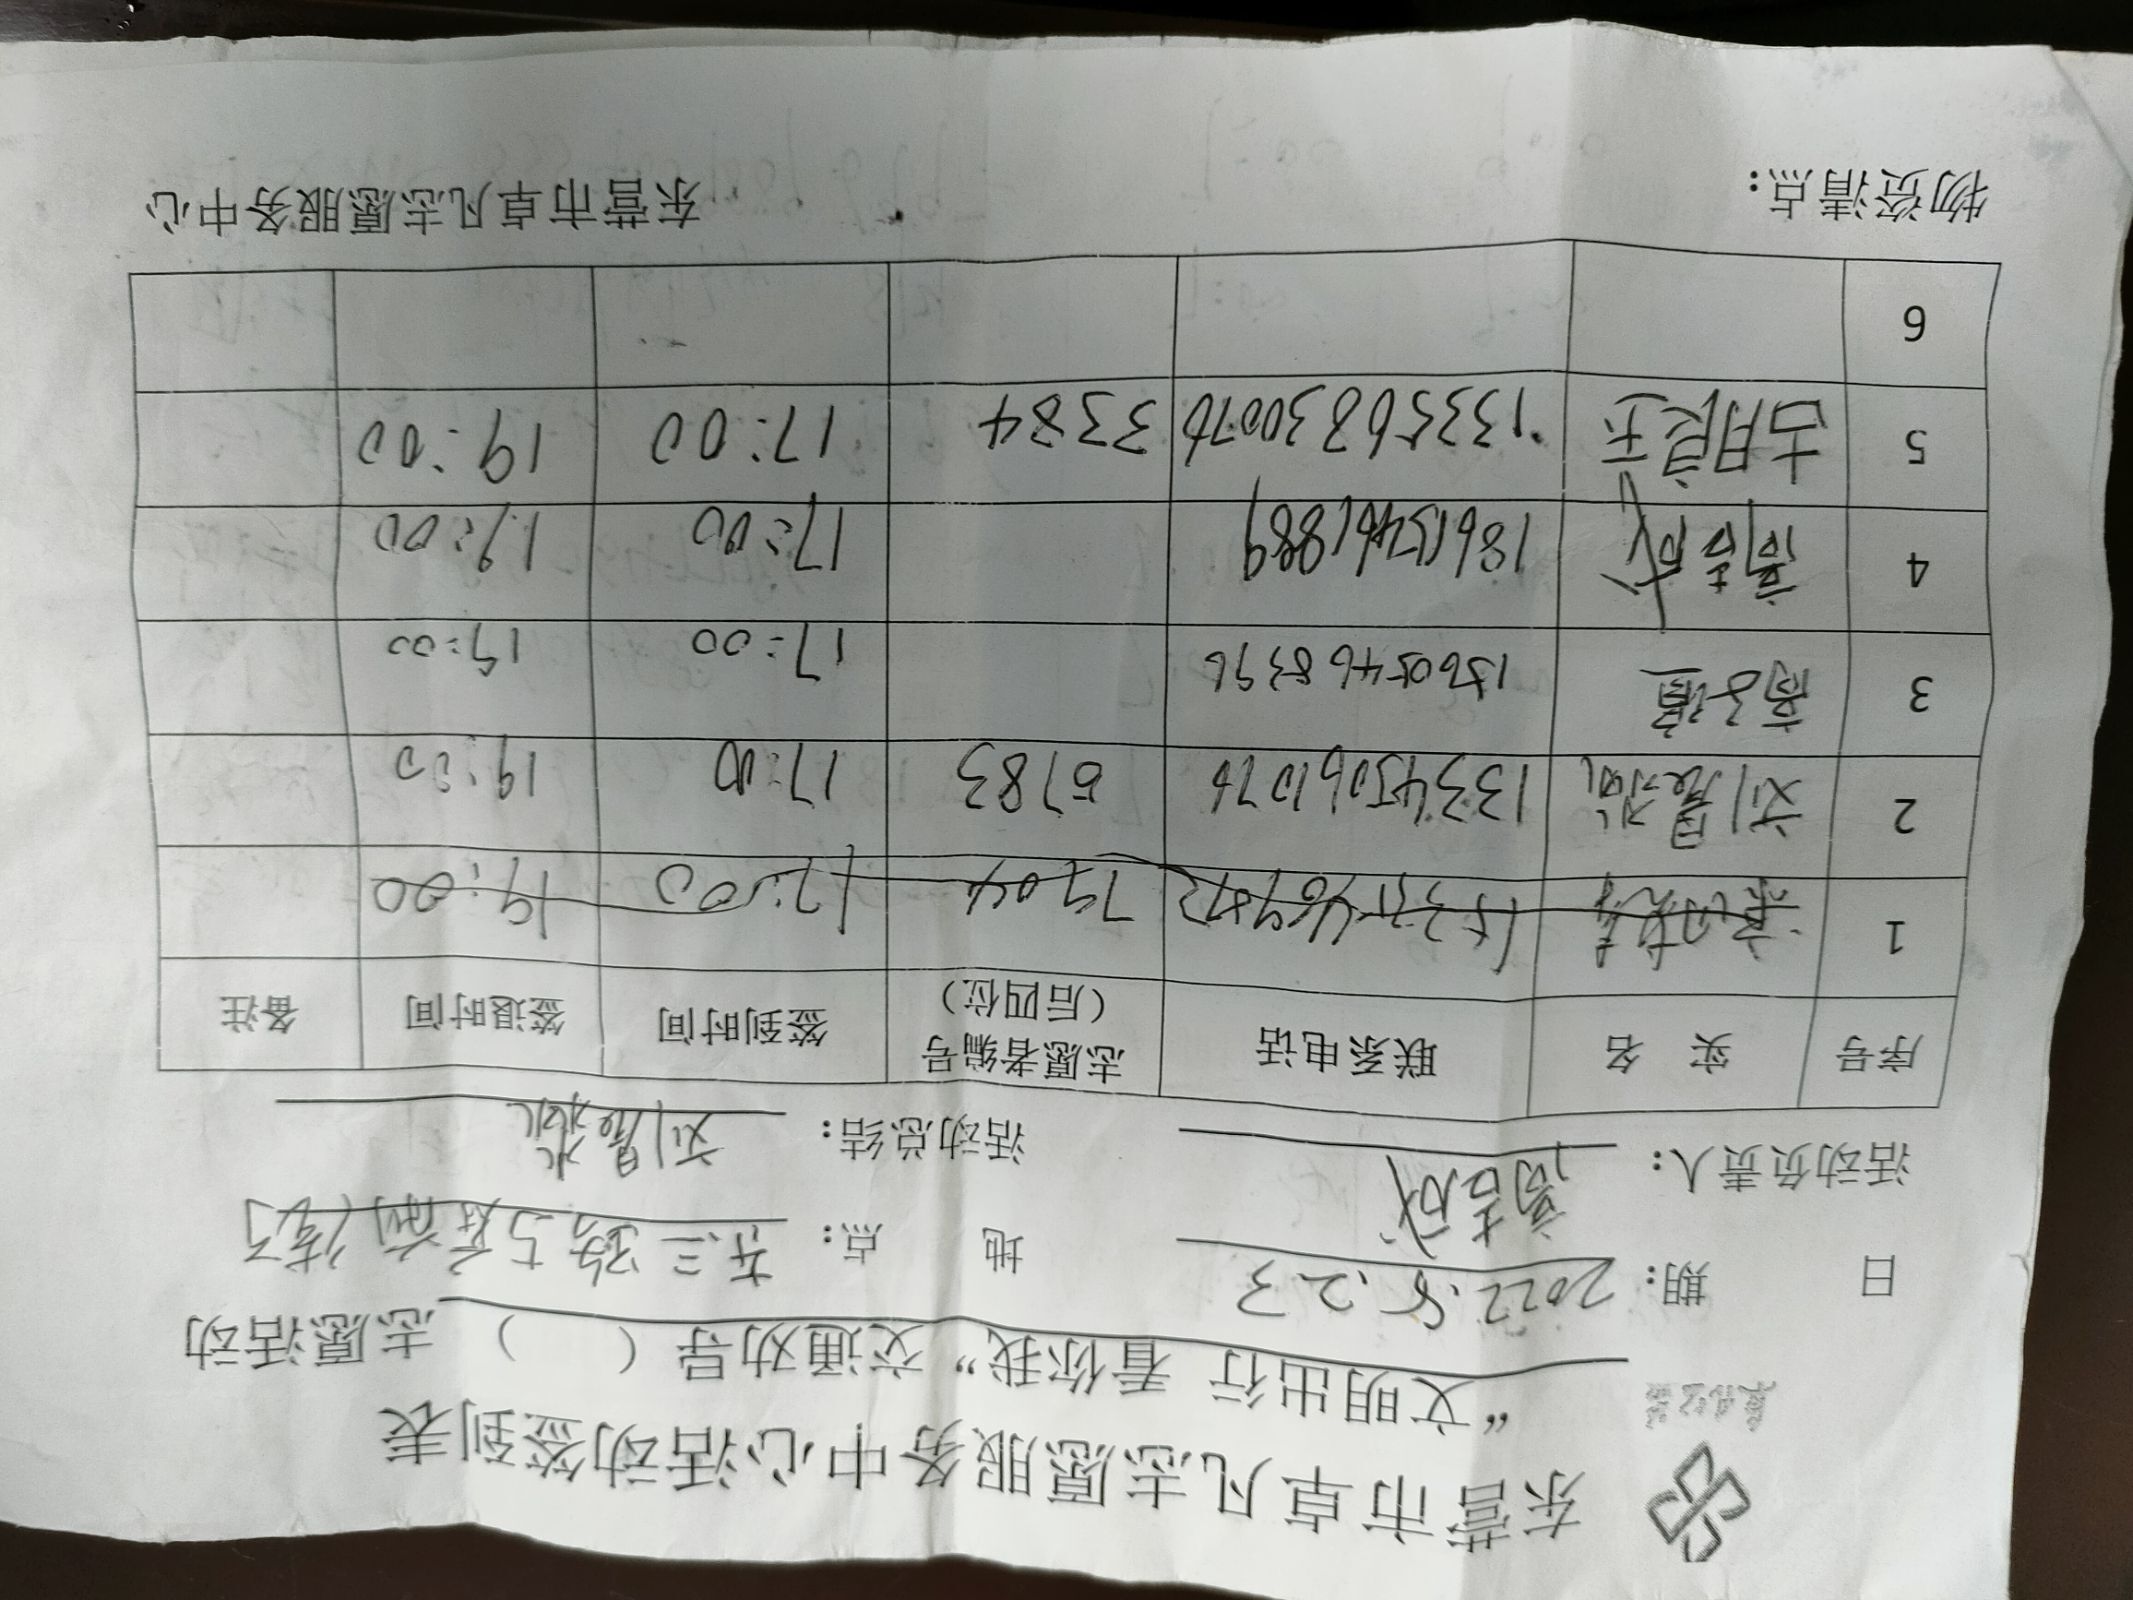 东营市卓凡志愿服务中心活动签到表
“文明出行 看你我”交通劝导（ ）志愿活动
日 期：2022.5.23 地 点：东三路与府前街
活动负责人：高吉成 活动总结：刘晨
序号 实 名 联系电话 志愿者编号（后四位） 签到时间 签退时间 备注
1 7904 17:00 19:00
2 刘晨 13345061076 5783 17:00 19:00
3 13605468396 17:00 19:00
4 高吉成 18615461889 17:00 19:00
5 胡良玉 13356830076 3384 17:00 19:00
6
物资清点： 东营市卓凡志愿服务中心